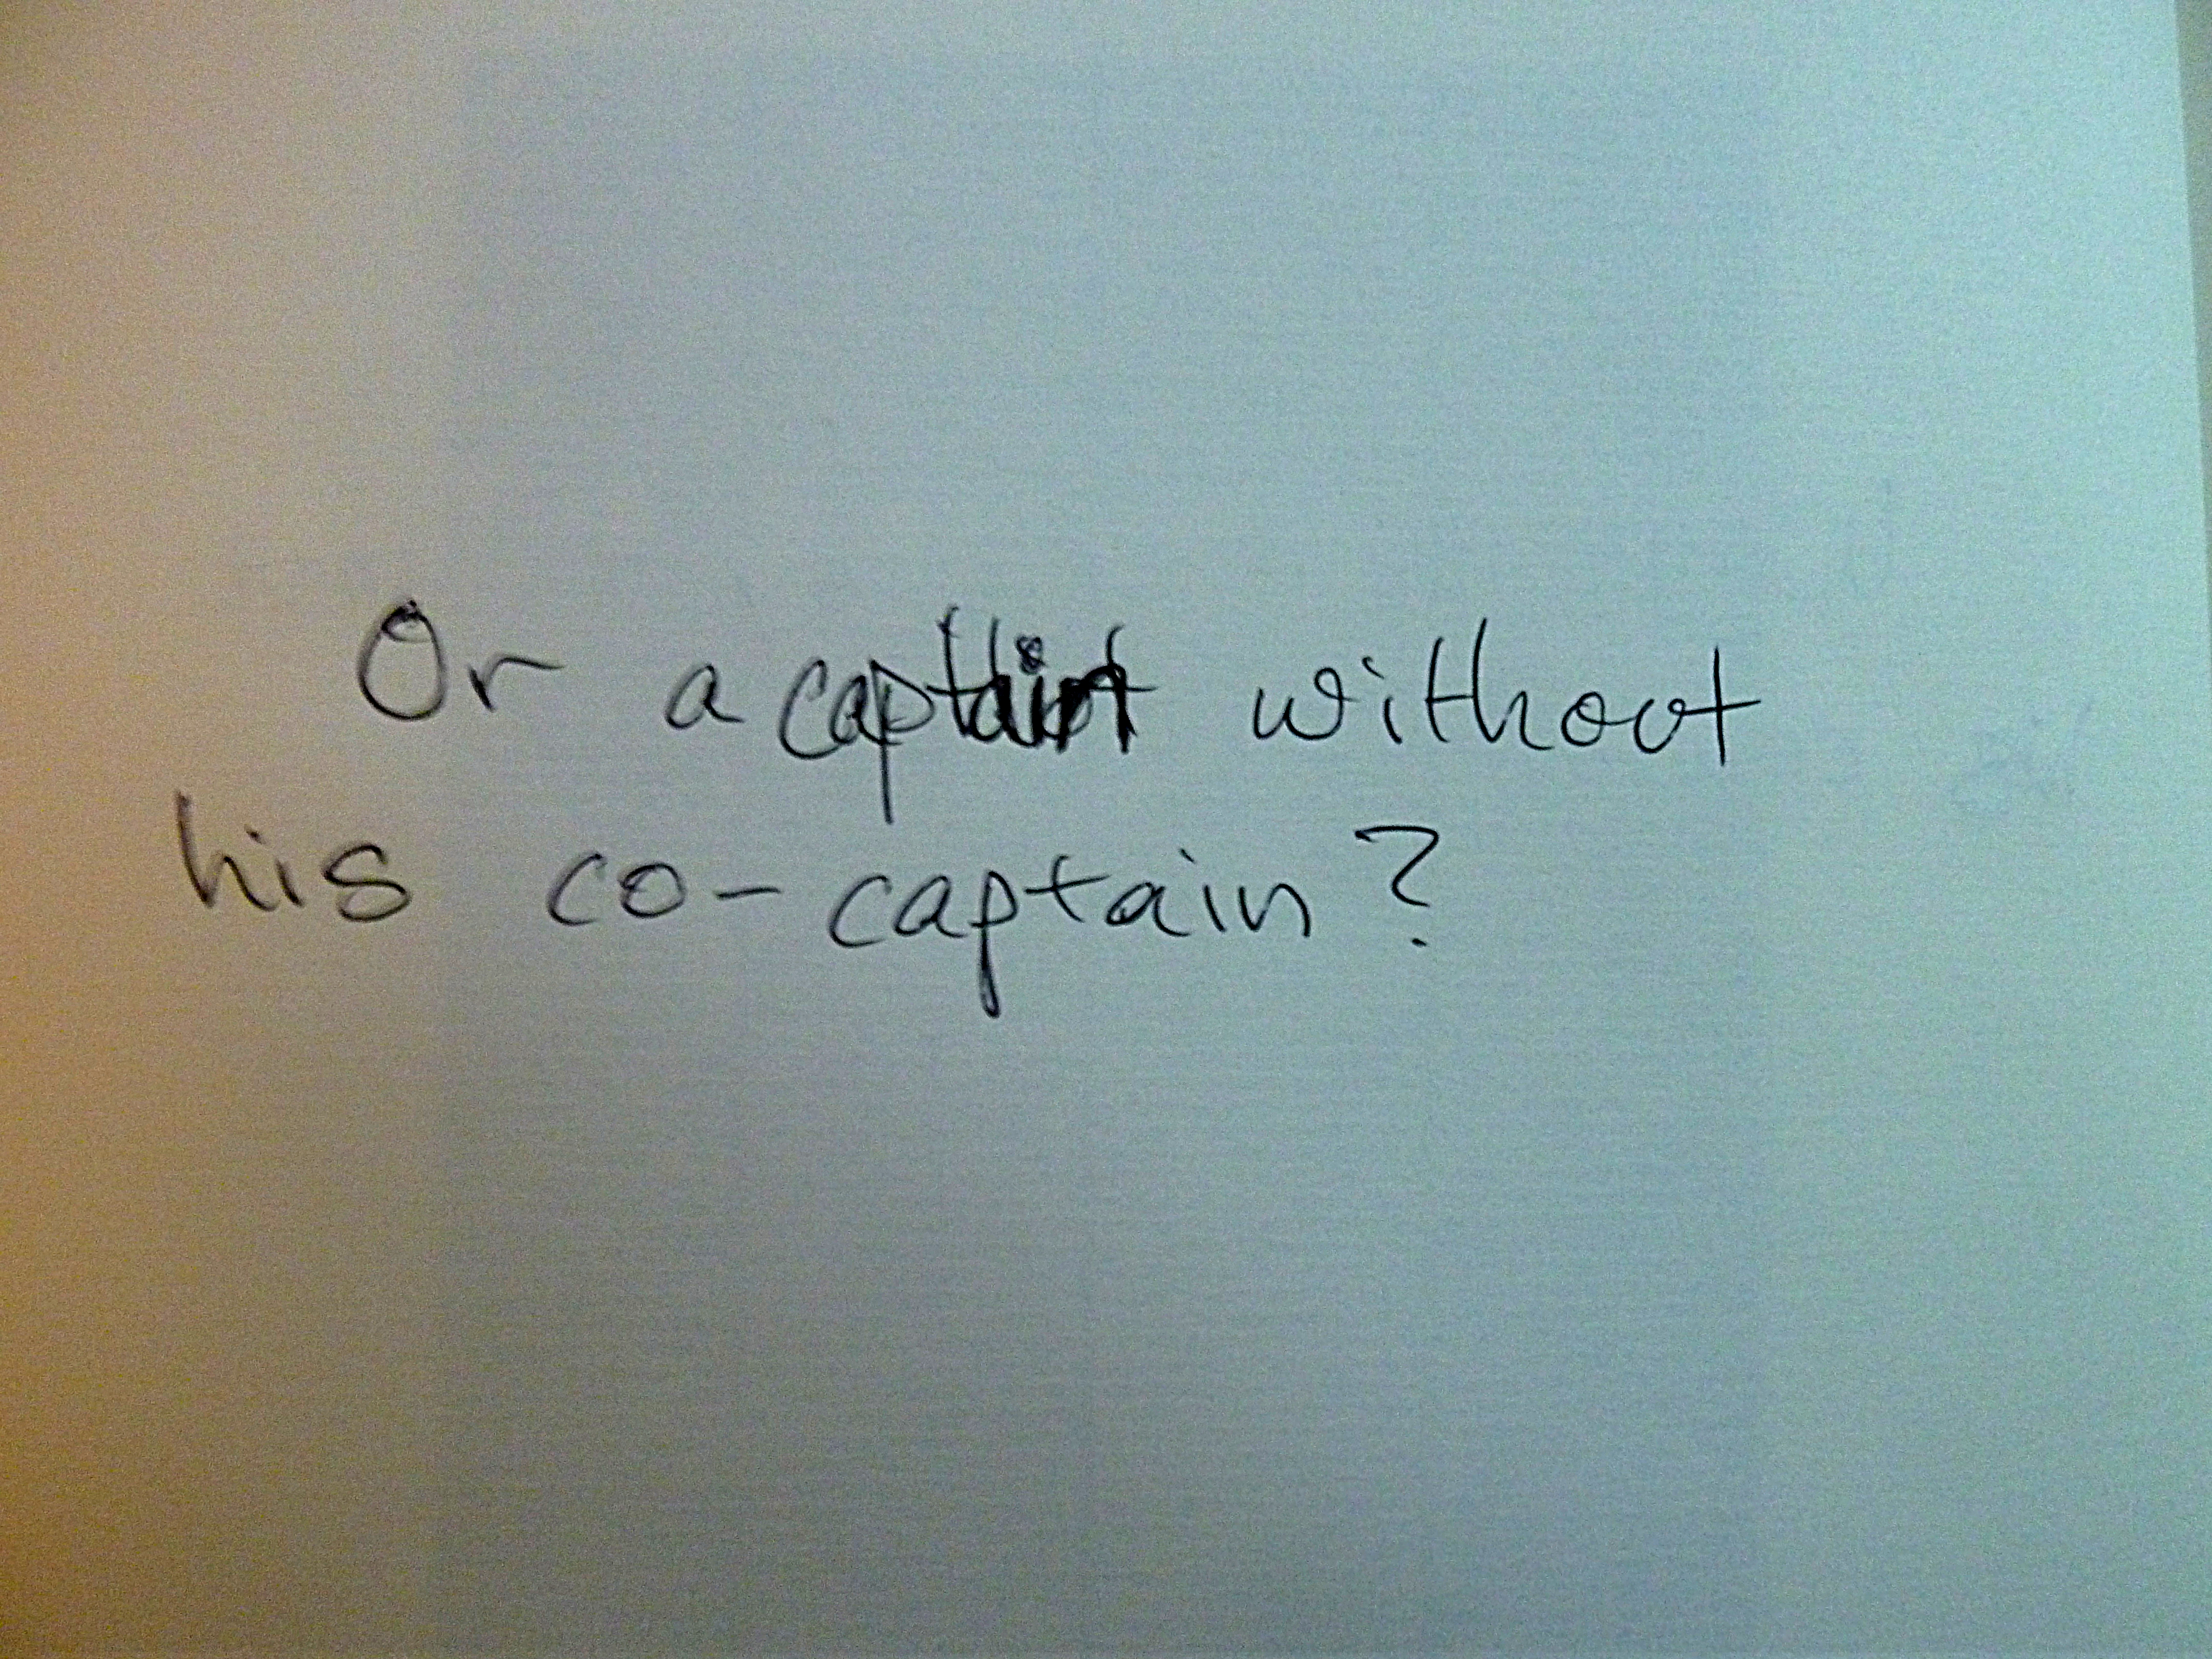 Or a captain without
his co-captain?